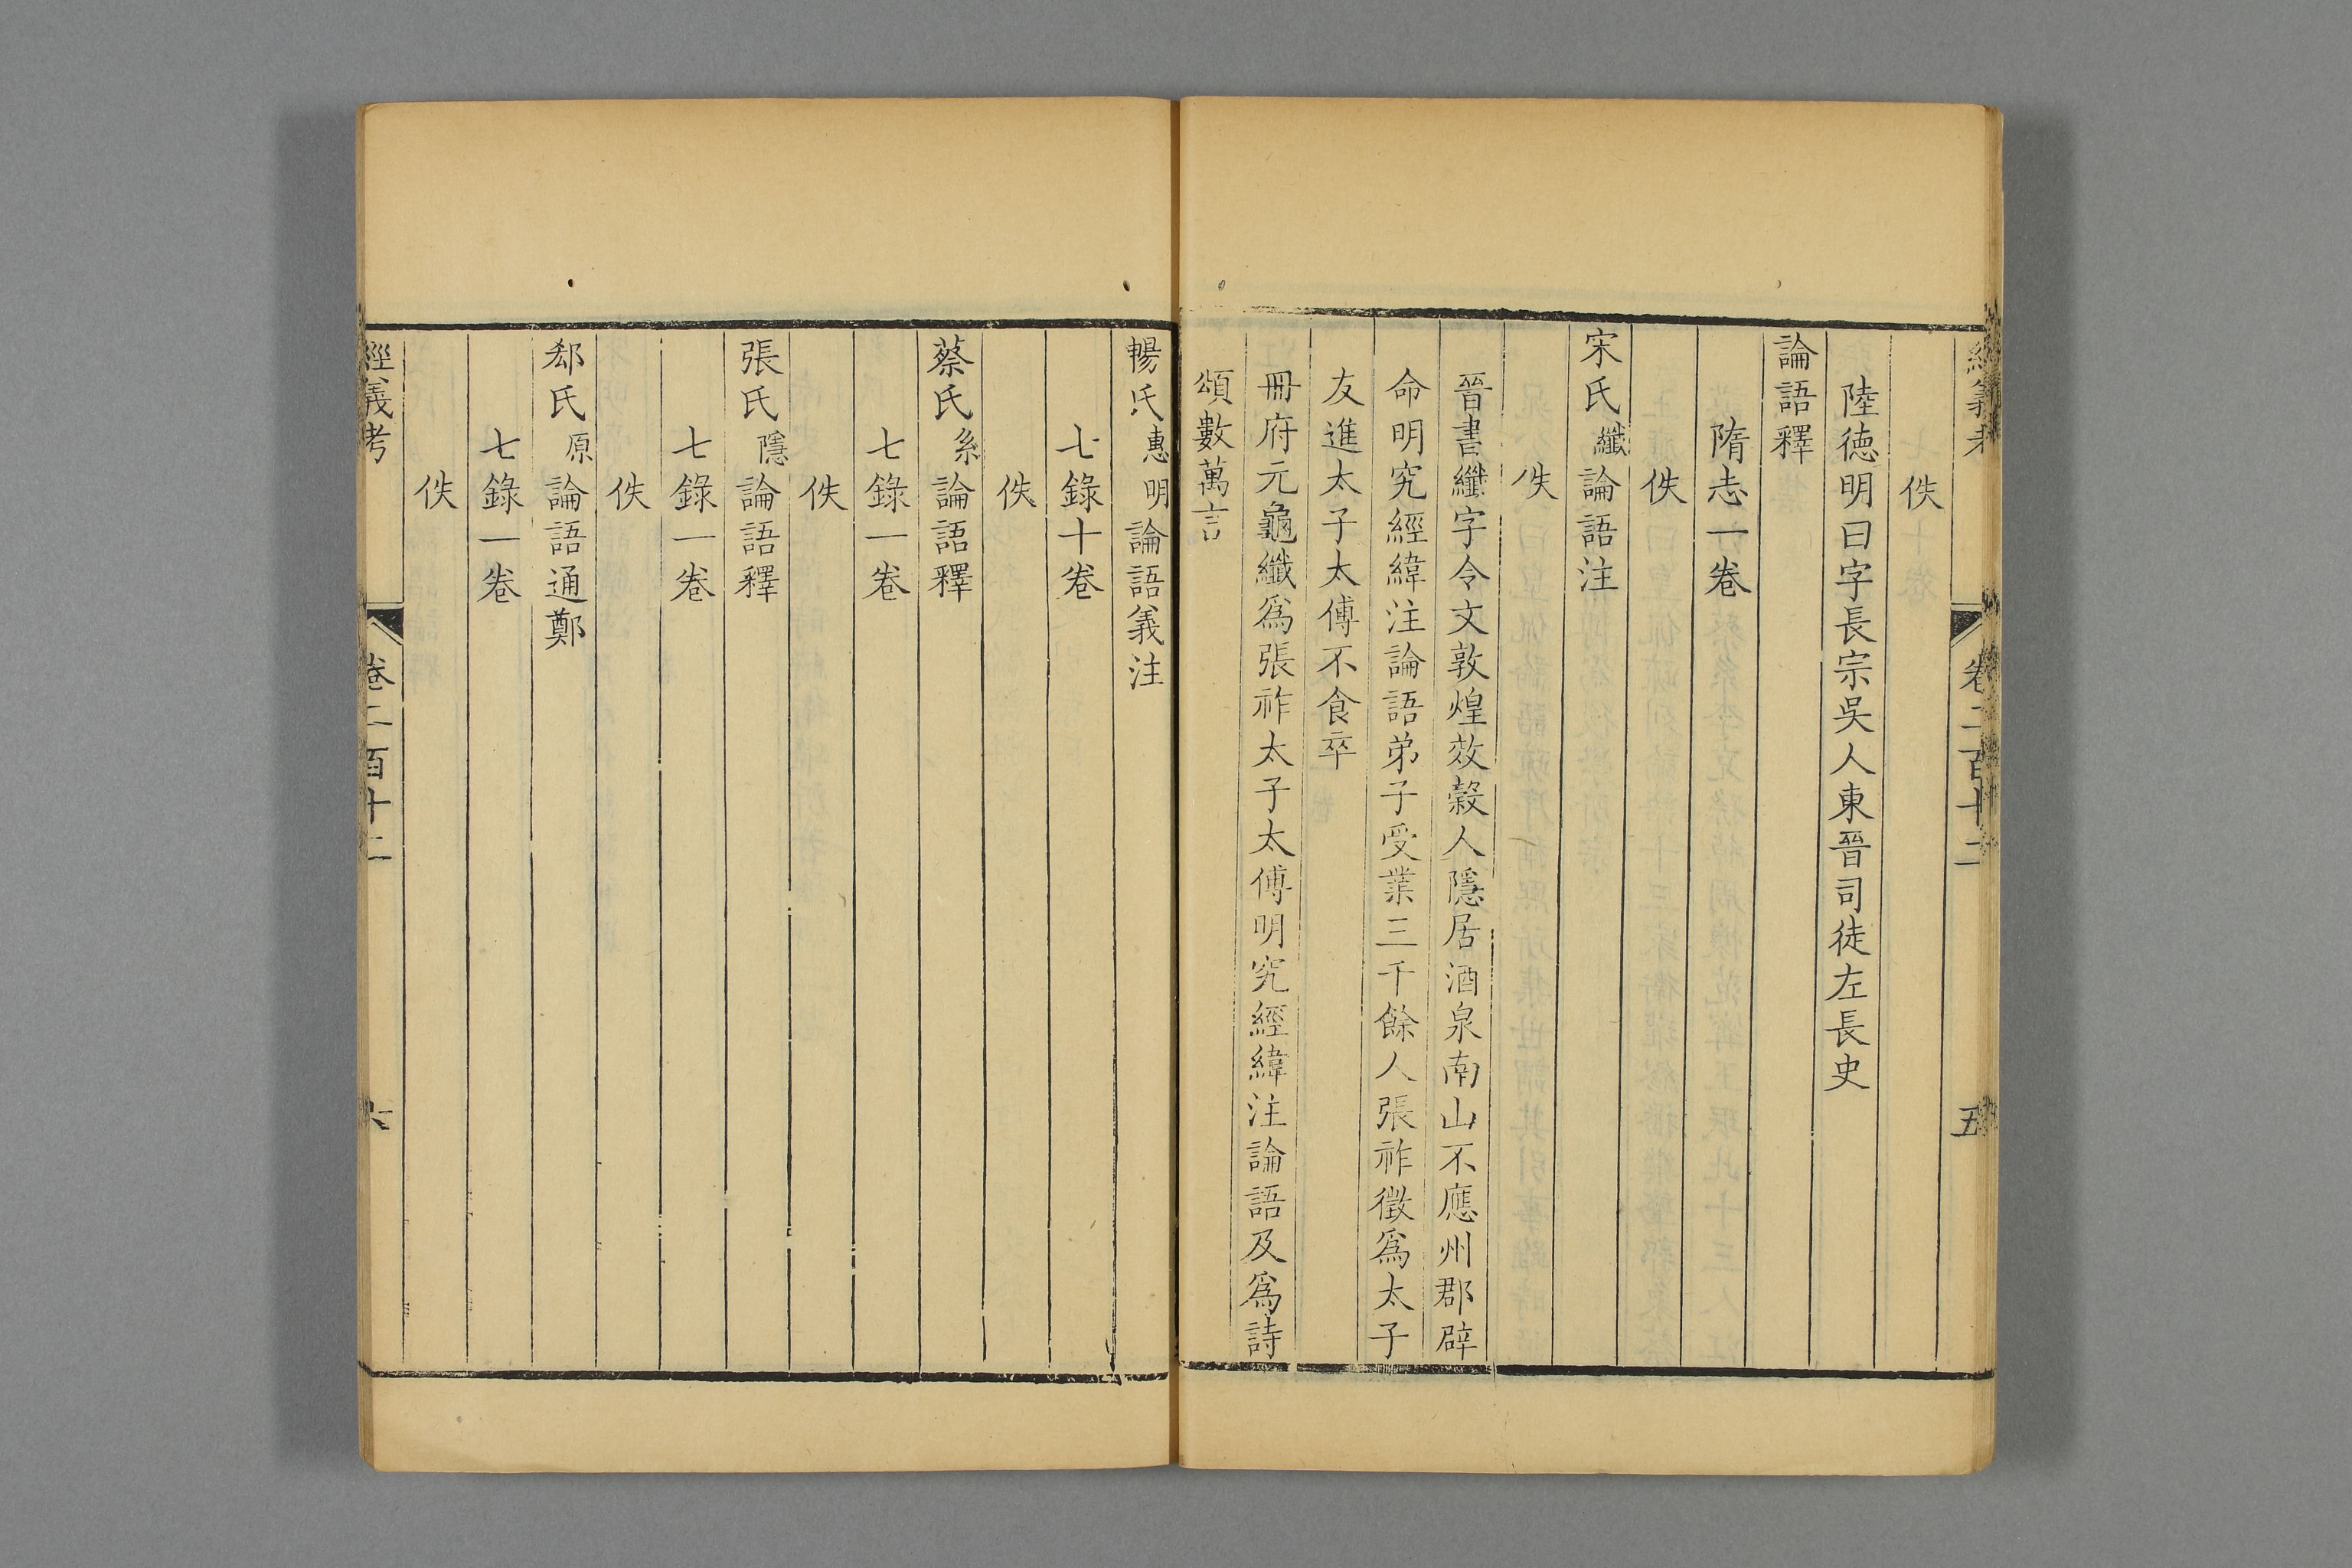 經義考 卷二百十二 五
佚
陸德明曰字長宗吳人東晉司徒左長史
論語釋
隋志一卷
佚
宋氏纖論語注
佚
晉書纖字令文敦煌效穀人隱居酒泉南山不應州郡辟
命明究經緯注論語弟子受業三千餘人張祚徵爲太子
友進太子太傅不食卒
冊府元龜纖爲張祚太子太傅明究經緯注論語及爲詩
頌數萬言
暢氏惠明論語義注
七錄十卷
佚
蔡氏系論語釋
七錄一卷
佚
張氏隱論語釋
七錄一卷
佚
郄氏原論語通鄭
七錄一卷
佚
經義考 卷二百十二 六